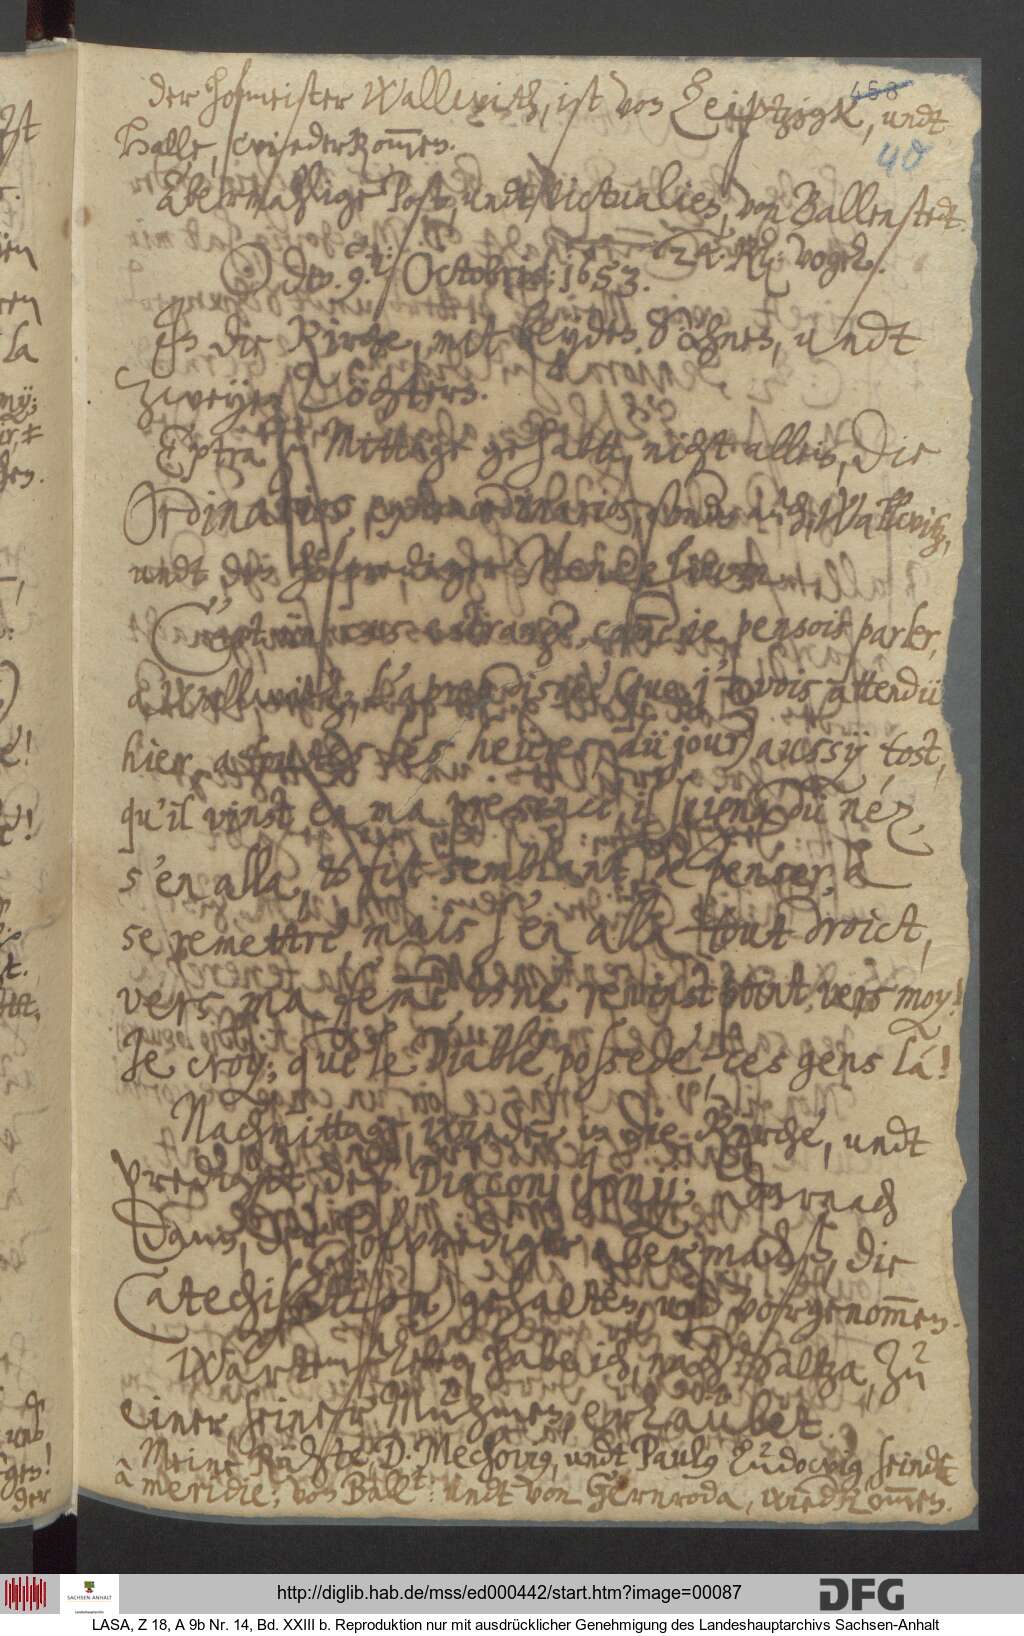 der Hofmeister Wallwitz, ist von Leiptzigk, undt
458
40
Halle, wiederkommen.
Abermahlige Post, undt Victualien, von Ballenstedt.
2 R: vogel.
den 9. Octobris: 1653.
In die Kirche, mit beyden Söhnen, undt
Zweyen Töchtern.
Extra zu Mittage gehabtt, nicht allein, die
Ordinarios, extraordinarios, undt Wallwitz,
undt den hofprediger
C'est un cas estrange, comme je pensois parler,
a Wallwitz, l'apres disnèe (que j'avois attendü
hier, a toutes les heüres dü jour) aussy tost,
qu'il vinst en ma presence, il saigna dü néz,
s'en alla, & fist semblant de penser, a
se remettre mais s'en alla tout droict,
vers, ma femme & ne revinst point, vers moy!
Je croy; que le Diable, possede ces gens là!
Nachmittage, wieder in die Kirche, undt
predigt des Diaconj Jonij; darnach
dann, der hofprediger abermahls, die
Catechisation gehalten, undt vorgenommen.
habe ich, nach Paltza, zu
einer seiner Muhmen, erlaubet.
Meine Rähte, D. Mechovius, undt Paulus Ludowig, seindt
à meridie; von Ballenstedt: undt von Gernroda, wiedkommen.
http://diglib.hab.de/mss/ed000442/start.htm?image=00087
SACHSEN-ANHALT
Landeshauptarchiv
DFG
LASA, Z 18, A 9b Nr. 14, Bd. XXIII b. Reproduktion nur mit ausdrücklicher Genehmigung des Landeshauptarchivs Sachsen-Anhalt